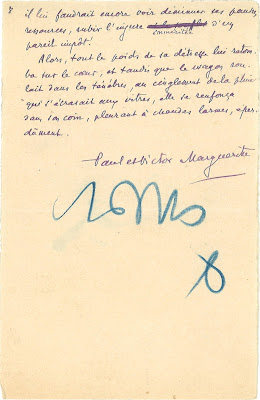 il lui faudrait encore voir diminuer ses pauvres
ressources, subir l'injure immeritée d'un
pareil impôt!
Alors, tout le poids de sa détresse lui retom-
ba sur le cœur, et tandis que le wagon rou-
lait dans les ténèbres, au cinglement de la pluie
qui s'écrasait aux vitres, elle se renfonça
dans son coin, pleurant à chaudes larmes, éper-
dûment.
Paul et Victor Margueritte